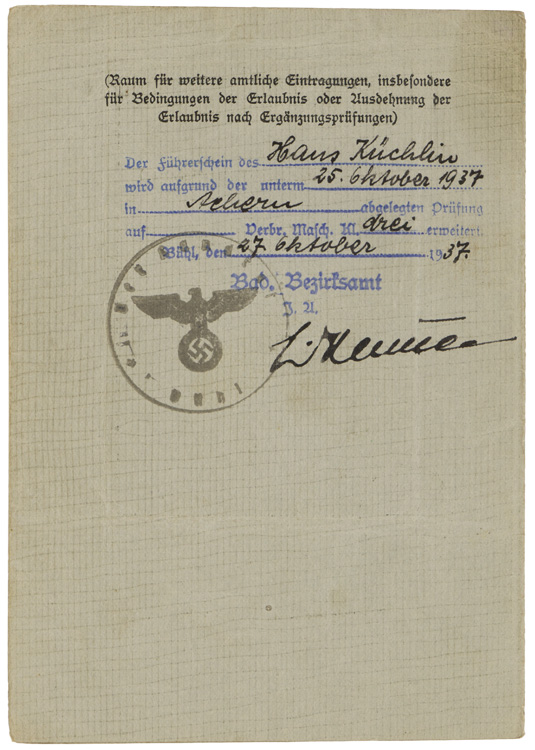 (Raum für weitere amtliche Eintragungen, insbesondere
für Bedingungen der Erlaubnis oder Ausdehnung der
Erlaubnis nach Ergänzungsprüfungen)
Der Führerschein des Hans Küchlin
wird aufgrund der unterm 25. Oktober 1937
in Achern abgelegten Prüfung
auf Verbr. Masch. Kl. drei erweitert.
Bühl, den 27. Oktober 1937.
Bad. Bezirksamt
J. A.